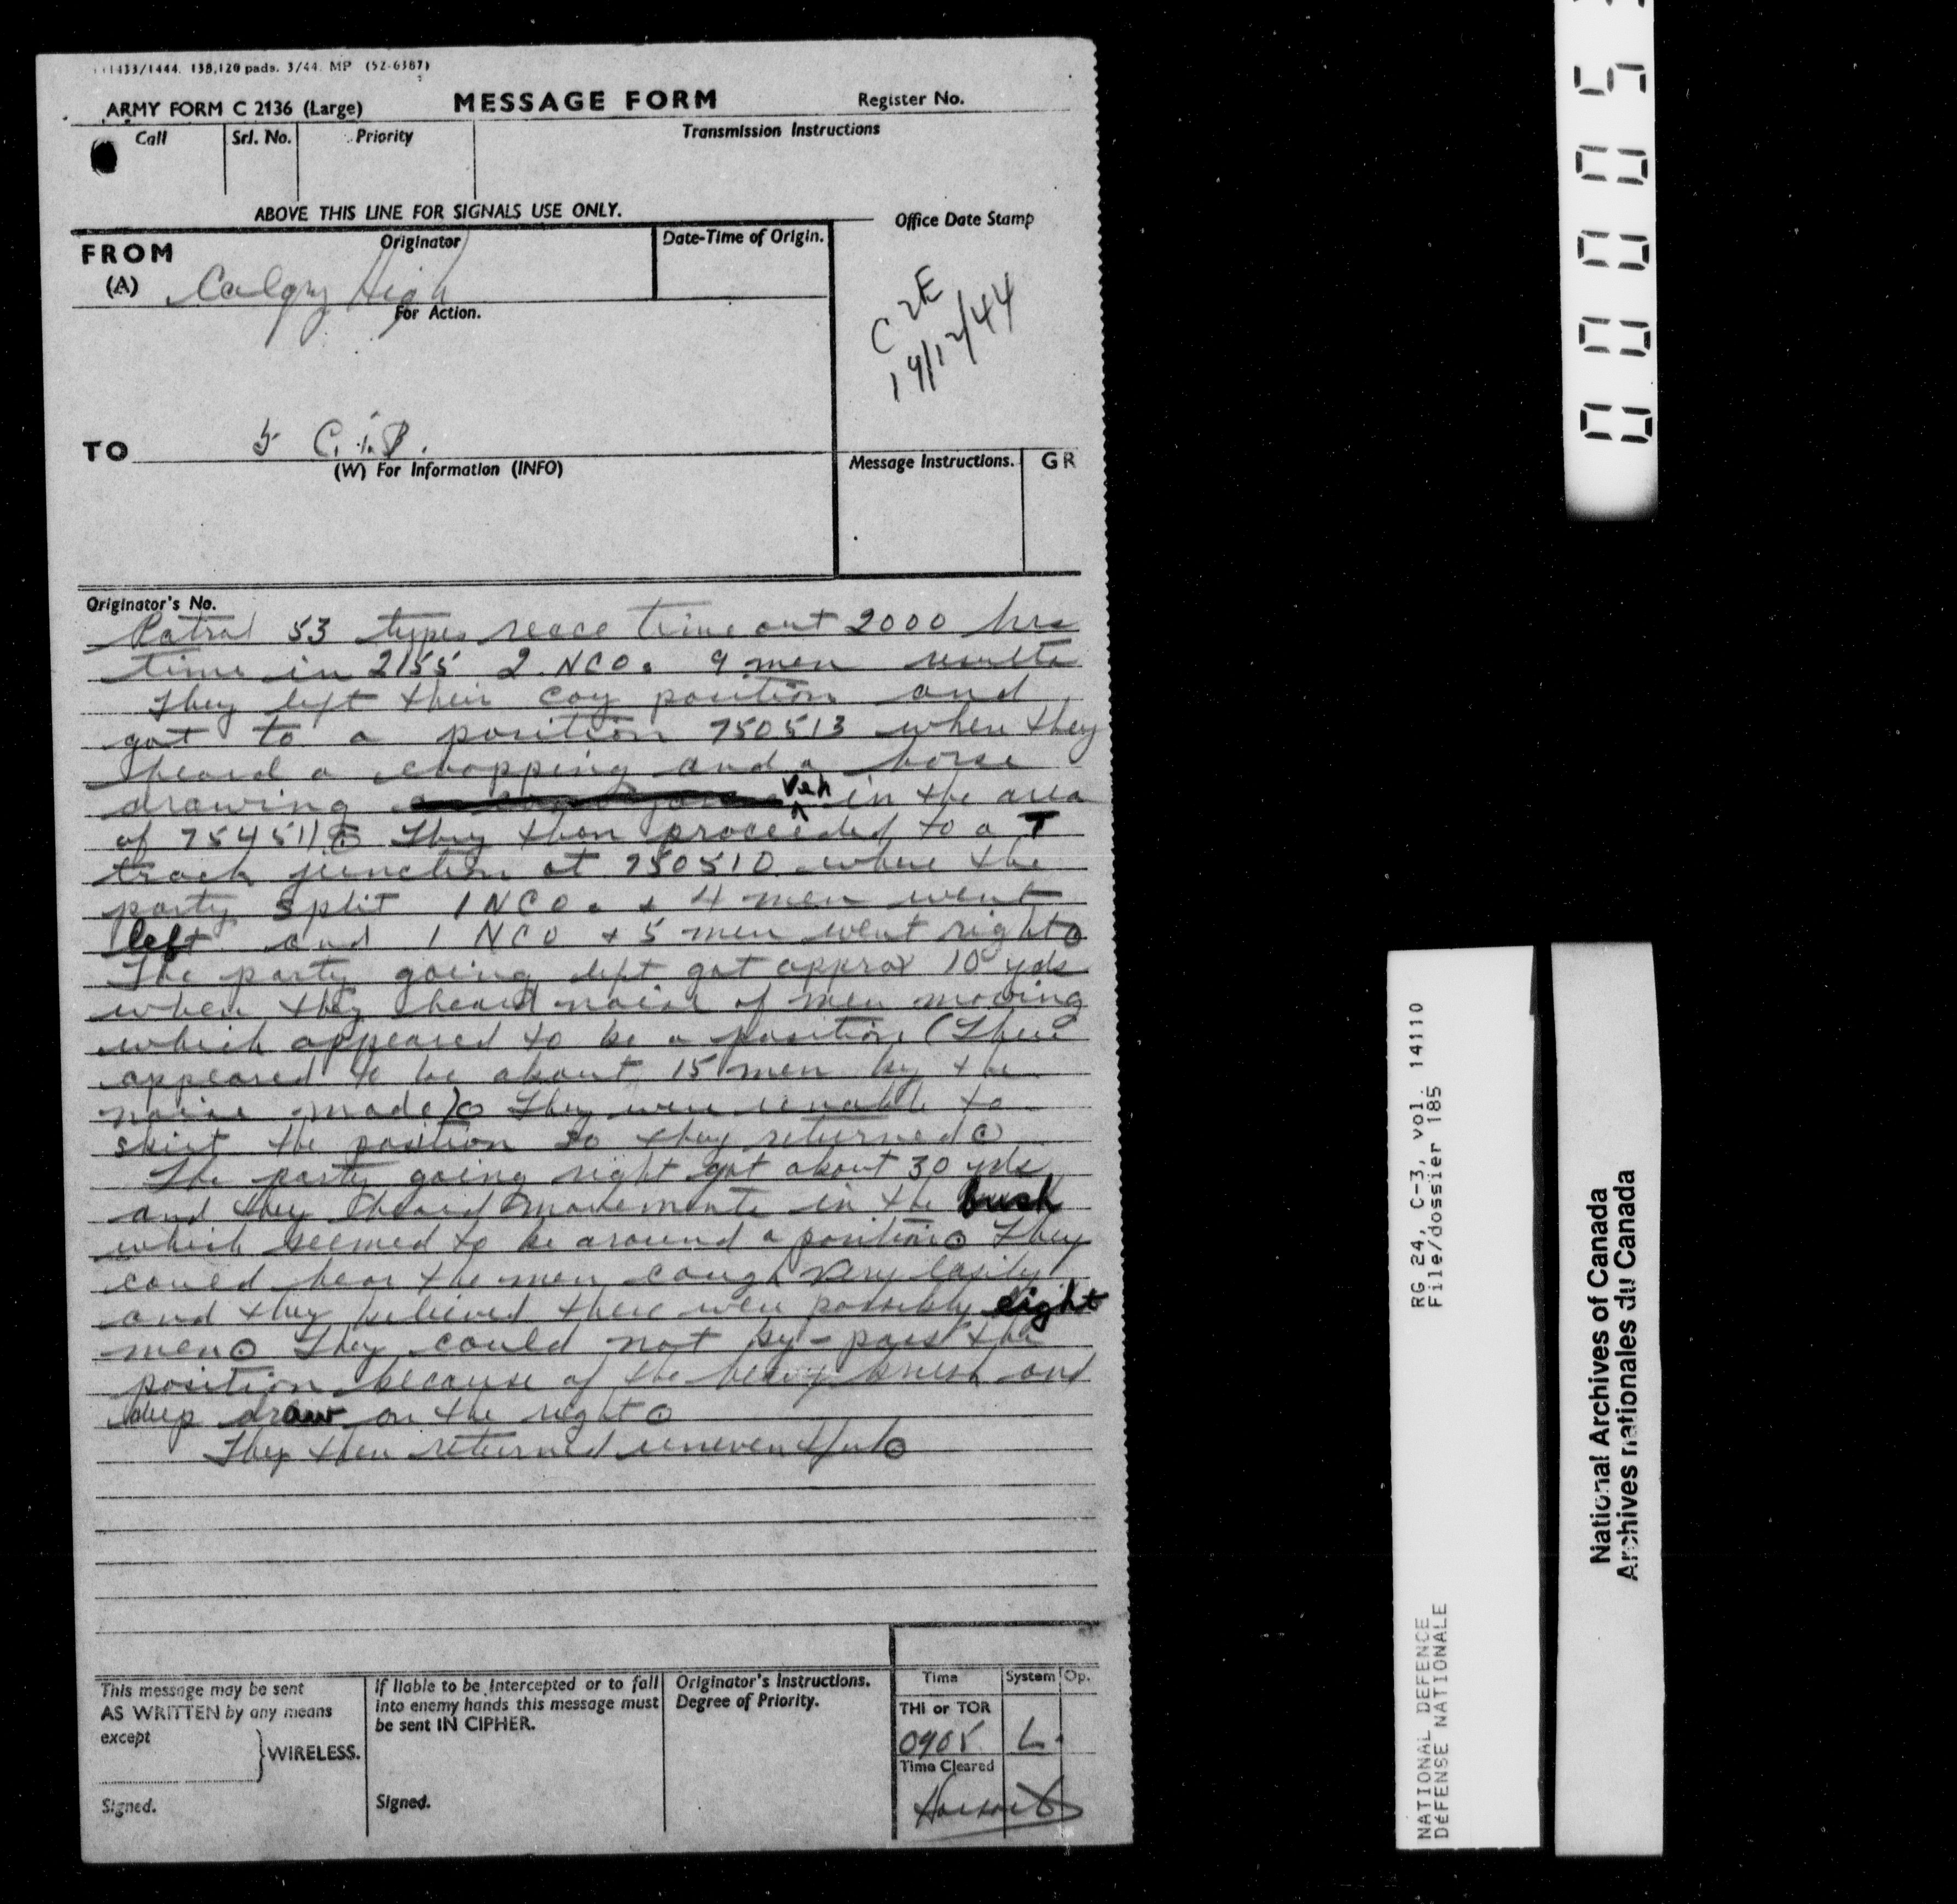 11433/1444. 138,120 pads. 3/44. MP (52-6387)
ARMY FORM C 2136 (Large) MESSAGE FORM Register No.
Call Srl. No. Priority Transmission Instructions
ABOVE THIS LINE FOR SIGNALS USE ONLY.
FROM Originator Date-Time of Origin. Office Date Stamp
(A) Calgry High
For Action.
19/12/44
TO 5 C.I.B.
(W) For Information (INFO) Message Instructions. GR
Originator's No.
Patrol 53 types recce time out 2000 hrs
time in 2155 2 NCOs 9 men results
They left their coy position and
got to a position 750513 when they
heard a chopping and a horse
drawing veh in the area
of 754511 They then proceeded to a T
track junction at 750510 where the
party split 1 NCO. + 4 men went
left and 1 NCO + 5 men went right
The party going left got approx 10 yds
when they heard noise of men moving
which appeared to be a position (There
appeared to be about 15 men by the
noise made) They were unable to
skirt the position so they returned
The party going right got about 30 yds
and they heard movements in the bush
which seemed to be around a position They
could hear the men cough very easily
and they believed there were possibly eight
men They could not by-pass the
position because of the heavy brush and
deep draw on the right
They then returned uneventful
This message may be sent
AS WRITTEN by any means
except
WIRELESS.
Signed.
If liable to be intercepted or to fall
into enemy hands this message must
be sent IN CIPHER.
Signed.
Originator's Instructions.
Degree of Priority.
Time System Op.
THI or TOR
0905 L.
Time Cleared
RG 24, C-3, vol. 14110
File/dossier 185
NATIONAL DEFENCE
DÉFENSE NATIONALE
National Archives of Canada
Archives nationales du Canada